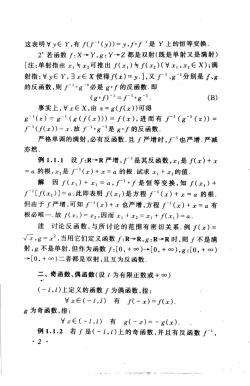 这表明∀y∈Y,有f(f⁻¹(y))=y,f·f⁻¹是Y上的恒等变换.
2° 若函数f:X→Y,g:Y→Z都是双射(既是单射又是满射)
[注:单射指由x₁≠x₂可推出f(x₁)≠f(x₂)(∀x₁,x₂∈X);满
射指:∀y∈Y,∃x∈X使得f(x)=y.],又f⁻¹,g⁻¹分别是f,g
的反函数,则f⁻¹·g⁻¹必是g·f的反函数.即
(g·f)⁻¹=f⁻¹·g⁻¹. (B)
事实上,∀x∈X,由z=g(f(x))可得
g⁻¹(z)=g⁻¹(g(f(x)))=f(x),进而有f⁻¹(g⁻¹(z))=
f⁻¹(f(x))=x.故f⁻¹·g⁻¹是g·f的反函数.
严格单调的满射,必有反函数.且f严增时,f⁻¹也严增.严减
亦然.
例1.1.1 设f:R→R严增,f⁻¹是其反函数,x₁是f(x)+x
=a的根,x₂是f⁻¹(x)+x=a的根.试求x₁+x₂的值.
解 因f(x₁)+x₁=a,f⁻¹·f是恒等变换,知f(x₁)+
f⁻¹[f(x₁)]=a.此即表明f(x₁)是方程f⁻¹(x)+x=a的根.
但由于f严增,可知f⁻¹(x)+x也严增,方程f⁻¹(x)+x=a有
根必唯一.故f(x₁)=x₂,因而x₁+x₂=x₁+f(x₁)=a.
注 讨论反函数,与所讨论的范围有密切关系.例f(x)=
√x,g=x²,当用它们定义函数f:R→R,g:R→R时,则f不是满
射,g不是单射.但作为函数f:[0,+∞)→[0,+∞),g:[0,+∞)
→[0,+∞)二者都是双射,且互为反函数.
二、奇函数、偶函数(设l为有限正数或+∞)
(-l,l)上定义的函数f为偶函数,指:
∀x∈(-l,l) 有 f(-x)=f(x).
g为奇函数,指:
∀x∈(-l,l) 有 g(-x)=-g(x).
例1.1.2 若f是(-l,l)上的奇函数,并且有反函数f⁻¹,
·2·